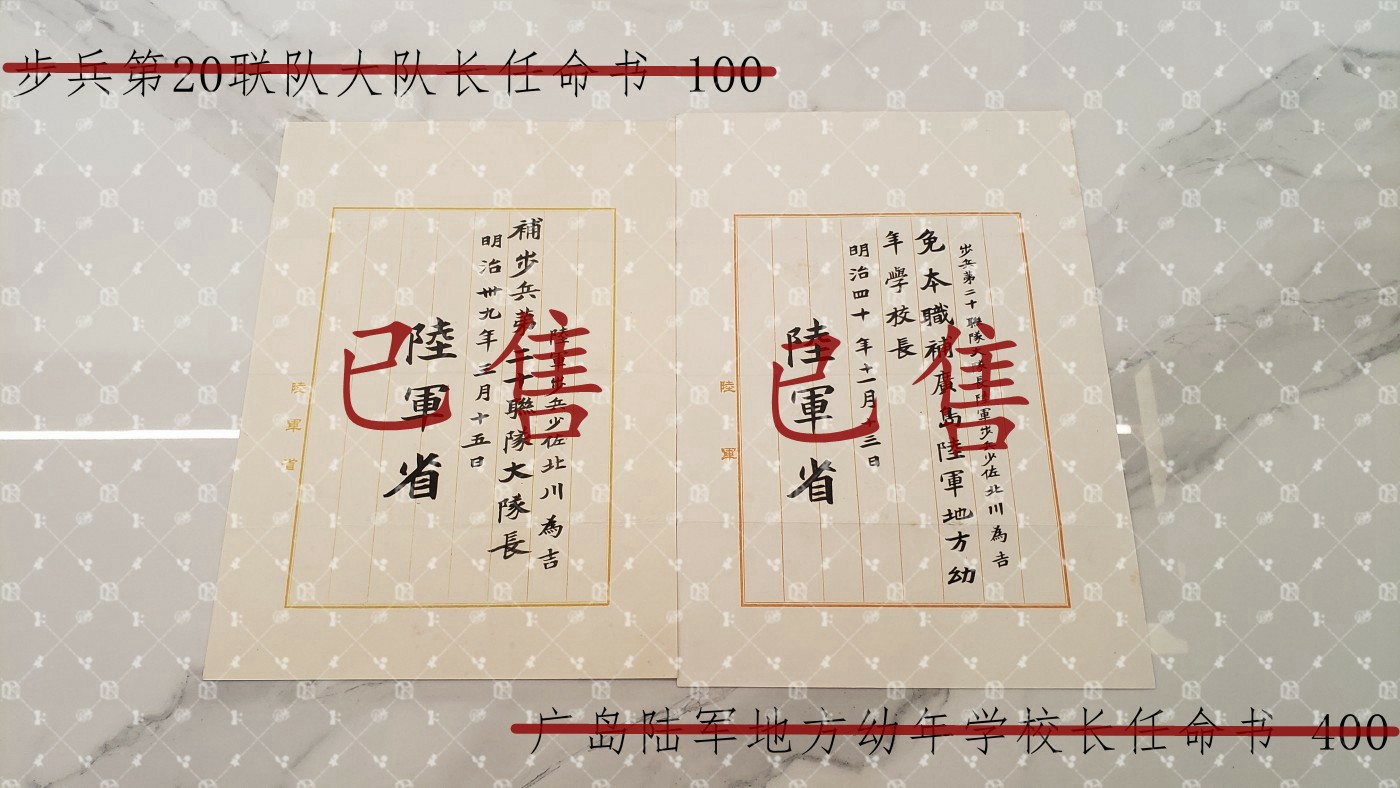 步兵第20联队大队长任命书 100
陸軍步兵少佐北川為吉
補步兵第二十聯隊大隊長
明治卅九年三月十五日
陸軍省
陸軍省
已售
步兵第二十聯隊大隊長陸軍步兵少佐北川為吉
免本職補廣島陸軍地方幼
年學校長
明治四十年十一月十三日
陸軍省
陸軍
已售
广岛陆军地方幼年学校长任命书 400